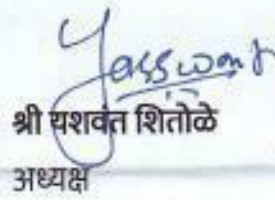 Yasswant
श्री यशवंत शितोळे
अध्यक्ष